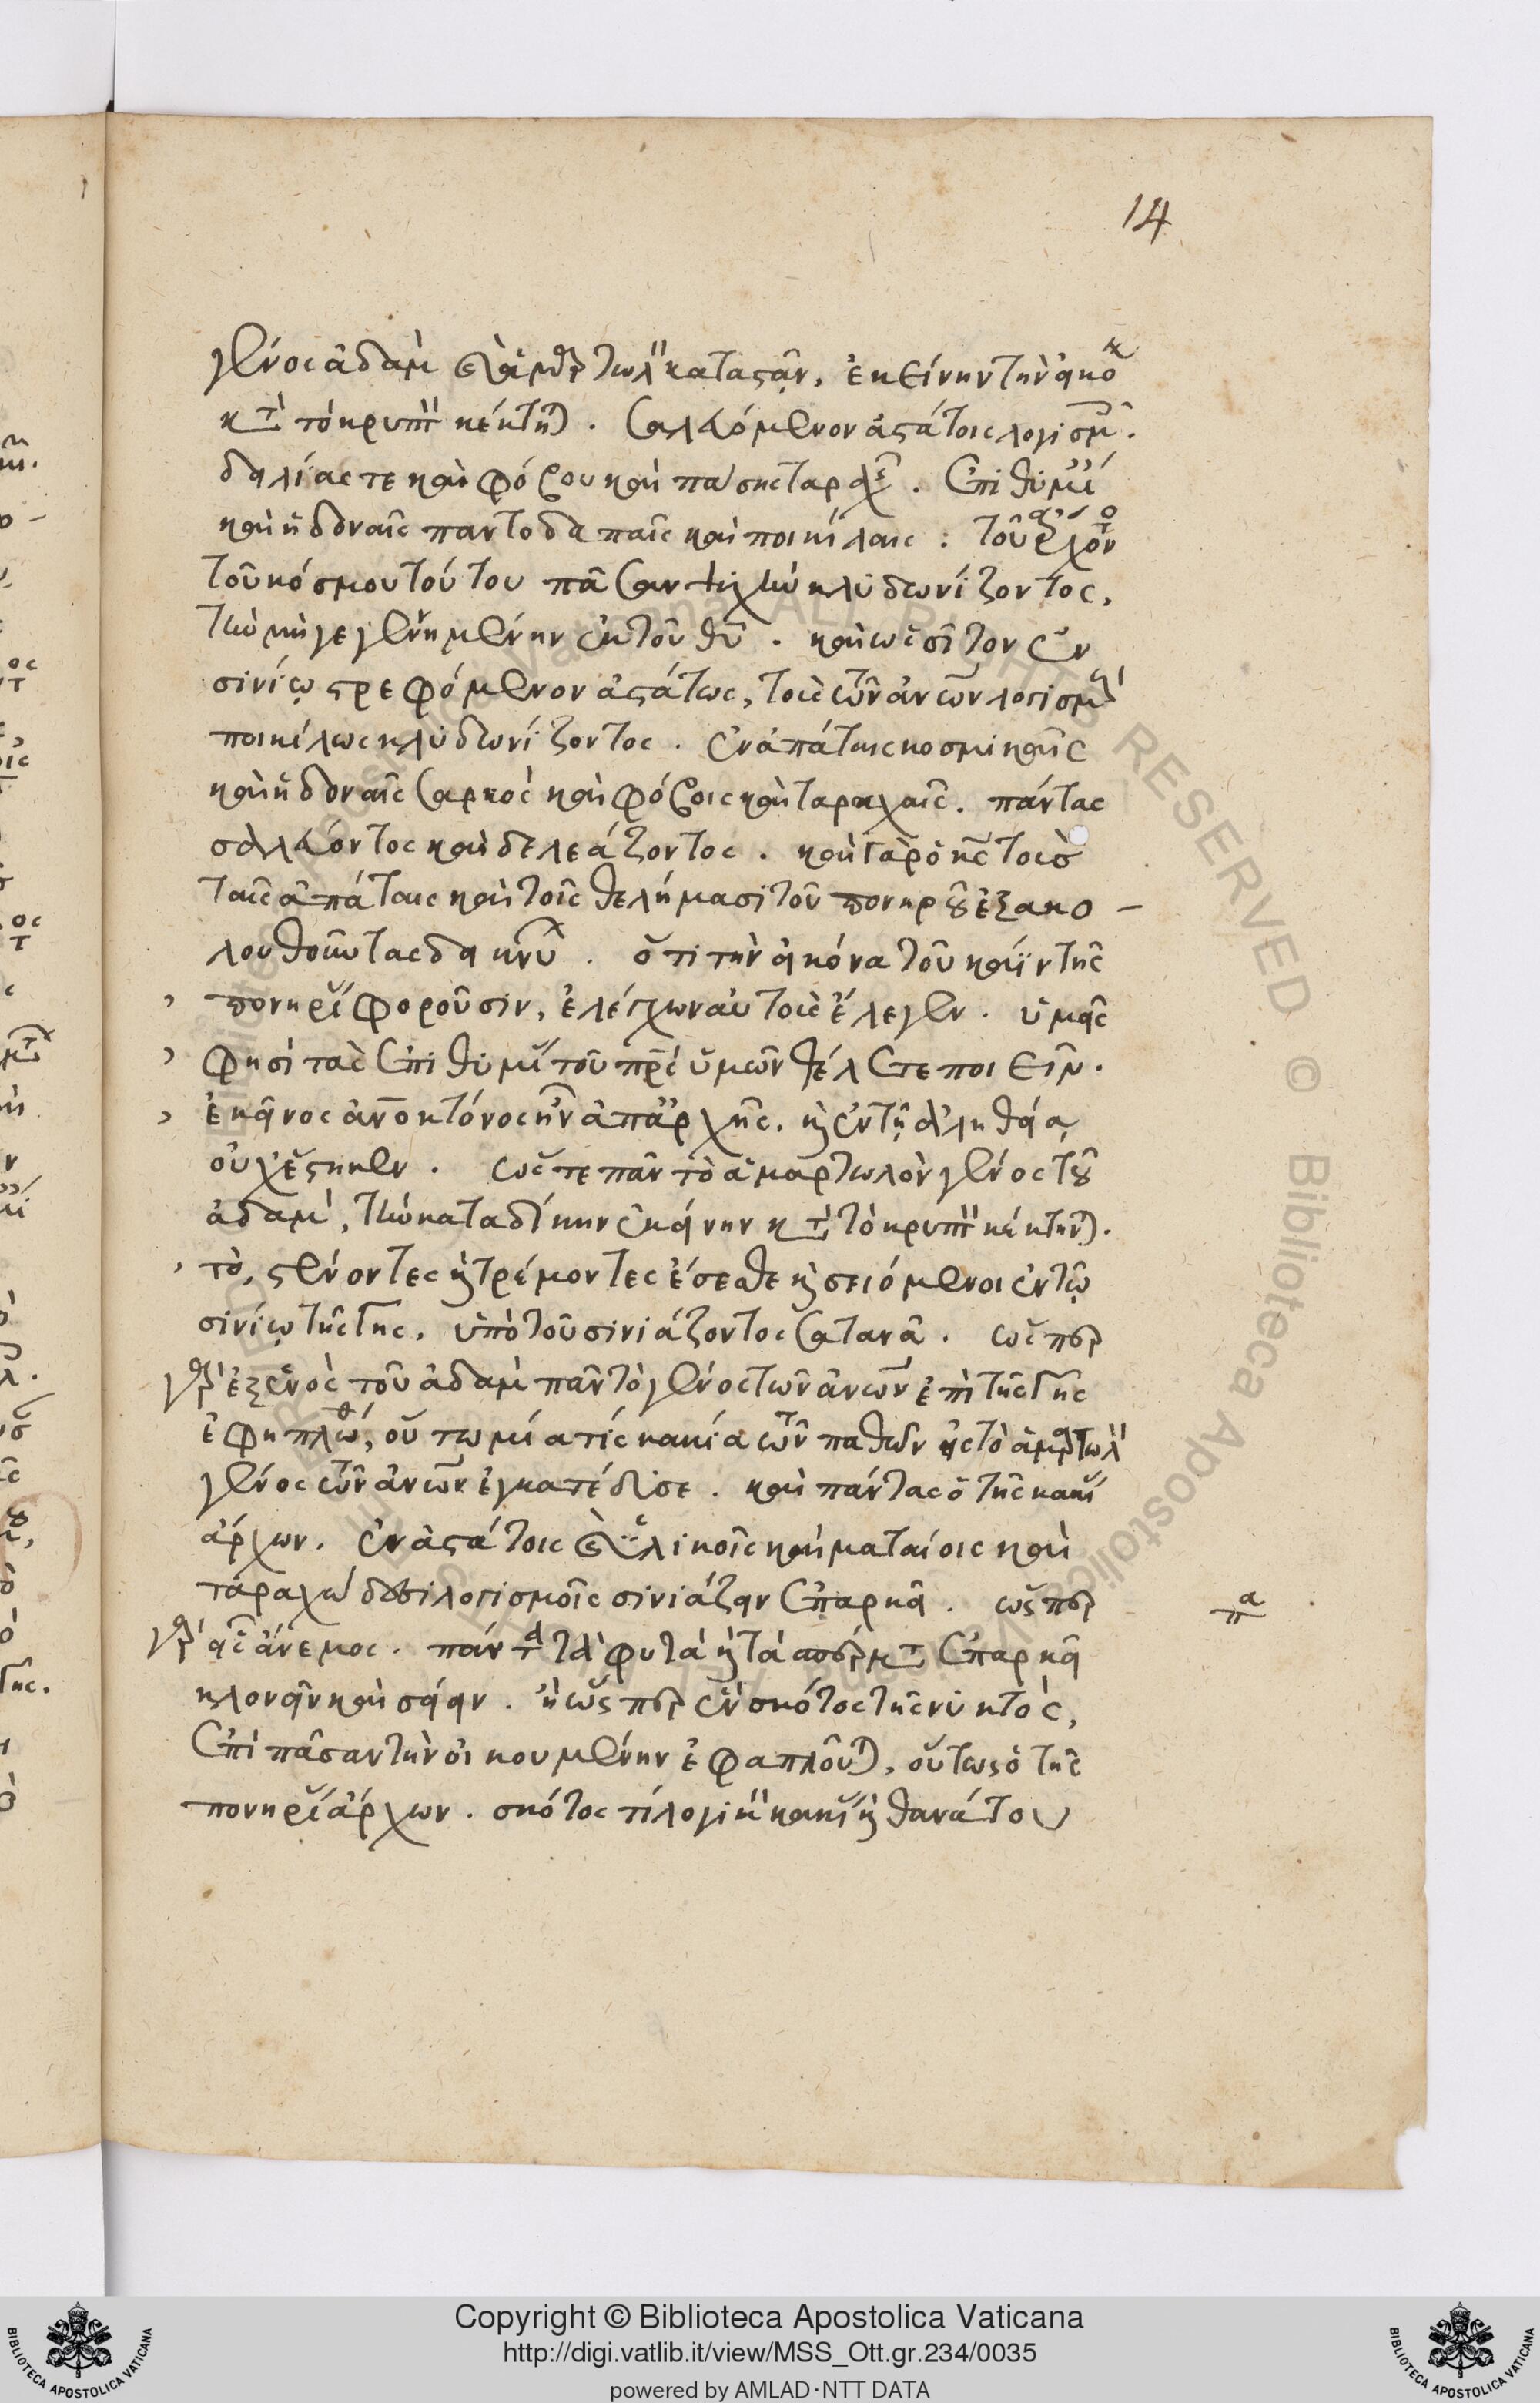 14
γένος ἀδὰμ εἰς ἁμαρτωλ κατάστασιν, ἐκείνην τὴν εἰκόνα
κατὰ τὸ κρυπτὸν κέκτηται. σαλευόμενον ἀστάτοις λογισμοῖς.
δειλίας τε καὶ φόβου καὶ πάσης ταραχῆς. ἐπιθυμίαις
καὶ ἡδοναῖς παντοδαπαῖς καὶ ποικίλαις: τοῦ ἄρχοντος
τοῦ κόσμου τούτου πᾶσαν ψυχὴν κλυδωνίζοντος,
τὴν μὴ γεγεννημένην ἐκ τοῦ θυ. καὶ ὡς σῖτον ἐν
σινίῳ στρεφόμενον ἀστάτως, τοὺς τῶν ἀνων λογισμοὺς
ποικίλως κλυδωνίζοντος. ἐν ἀπάταις κοσμικαῖς
καὶ ἡδοναῖς σαρκὸς καὶ φόβοις καὶ ταραχαῖς. πάντας
σαλεύοντος καὶ δελεάζοντος. καὶ γὰρ ὁ κς τοὺς
ταῖς ἀπάταις καὶ τοῖς θελήμασι τοῦ πονηροῦ ἐξακο-
λουθοῦντας δεικνύων. ὅτι τὴν εἰκόνα τοῦ κάϊν τῆς
πονηρίας φοροῦσιν, ἐλέγχων αὐτοὺς ἔλεγεν. ὑμεῖς
φησὶ τὰς ἐπιθυμίας τοῦ πρς ὑμῶν θέλετε ποιεῖν.
ἐκεῖνος ἀνοκτόνος ἦν ἀπ' ἀρχῆς. καὶ ἐν τῇ ἀληθείᾳ
οὐχ ἕστηκεν. ὥστε πᾶν τὸ ἁμαρτωλὸν γένος τοῦ
ἀδὰμ, τὴν καταδίκην ἐκείνην κατὰ τὸ κρυπτὸν κέκτηται.
τὸ, στένοντες καὶ τρέμοντες ἔσεσθε καὶ σειόμενοι ἐν τῷ
σινίῳ τῆς γῆς, ὑπὸ τοῦ σινιάζοντος σατανᾶ. ὥσπερ
γὰρ ἐξ ἑνὸς τοῦ ἀδὰμ πᾶν τὸ γένος τῶν ἀνων ἐπὶ τῆς γῆς
ἐφηπλώθη, οὕτω μία τίς κακία τῶν παθῶν εἰς τὸ ἁμαρτωλὸν
γένος τῶν ἀνων ἐγκατέδυσε. καὶ πάντας ὁ τῆς κακίας
ἄρχων. ἐν ἀστάτοις καὶ ὑλικοῖς καὶ ματαίοις καὶ
ταραχώδεσι λογισμοῖς σινιάζειν ἐπαρκεῖ. ὥσπερ
γὰρ εἷς ἄνεμος. πάντα τὰ φυτὰ καὶ τὰ σπέρματα ἐπαρκεῖ
κλονεῖν καὶ σείειν. καὶ ὥσπερ ἓν σκότος τῆς νυκτὸς,
ἐπὶ πᾶσαν τὴν οἰκουμένην ἐφαπλοῦται, οὕτως ὁ τῆς
πονηρίας ἄρχων. σκότος τί λογικὸν κακίας καὶ θανάτου
Copyright © Biblioteca Apostolica Vaticana
http://digi.vatlib.it/view/MSS_Ott.gr.234/0035
powered by AMLAD·NTT DATA